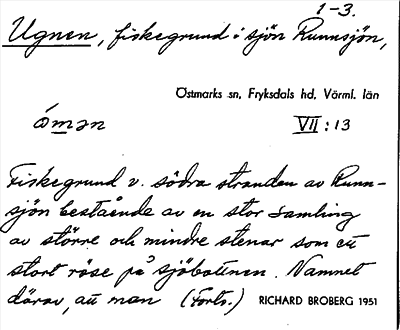 1-3.
Ugnen, fiskegrund i sjön Runnsjön,
Östmarks sn, Fryksdals hd, Värml. län
VII:13
Fiskegrund v. södra stranden av Runn-
sjön bestående av en stor samling
av större och mindre stenar som ett
stort röse på sjöbottnen. Namnet
därav, att man (Forts.) RICHARD BROBERG 1951